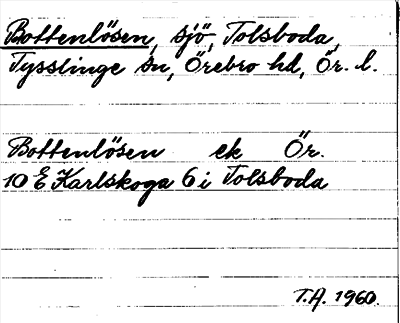 Bottenlösen, sjö, Tolsboda,
Tysslinge sn, Örebro hd, Ör. l.
Bottenlösen ek Ör.
10 E Karlskoga 6 i Tolsboda
T.A. 1960.